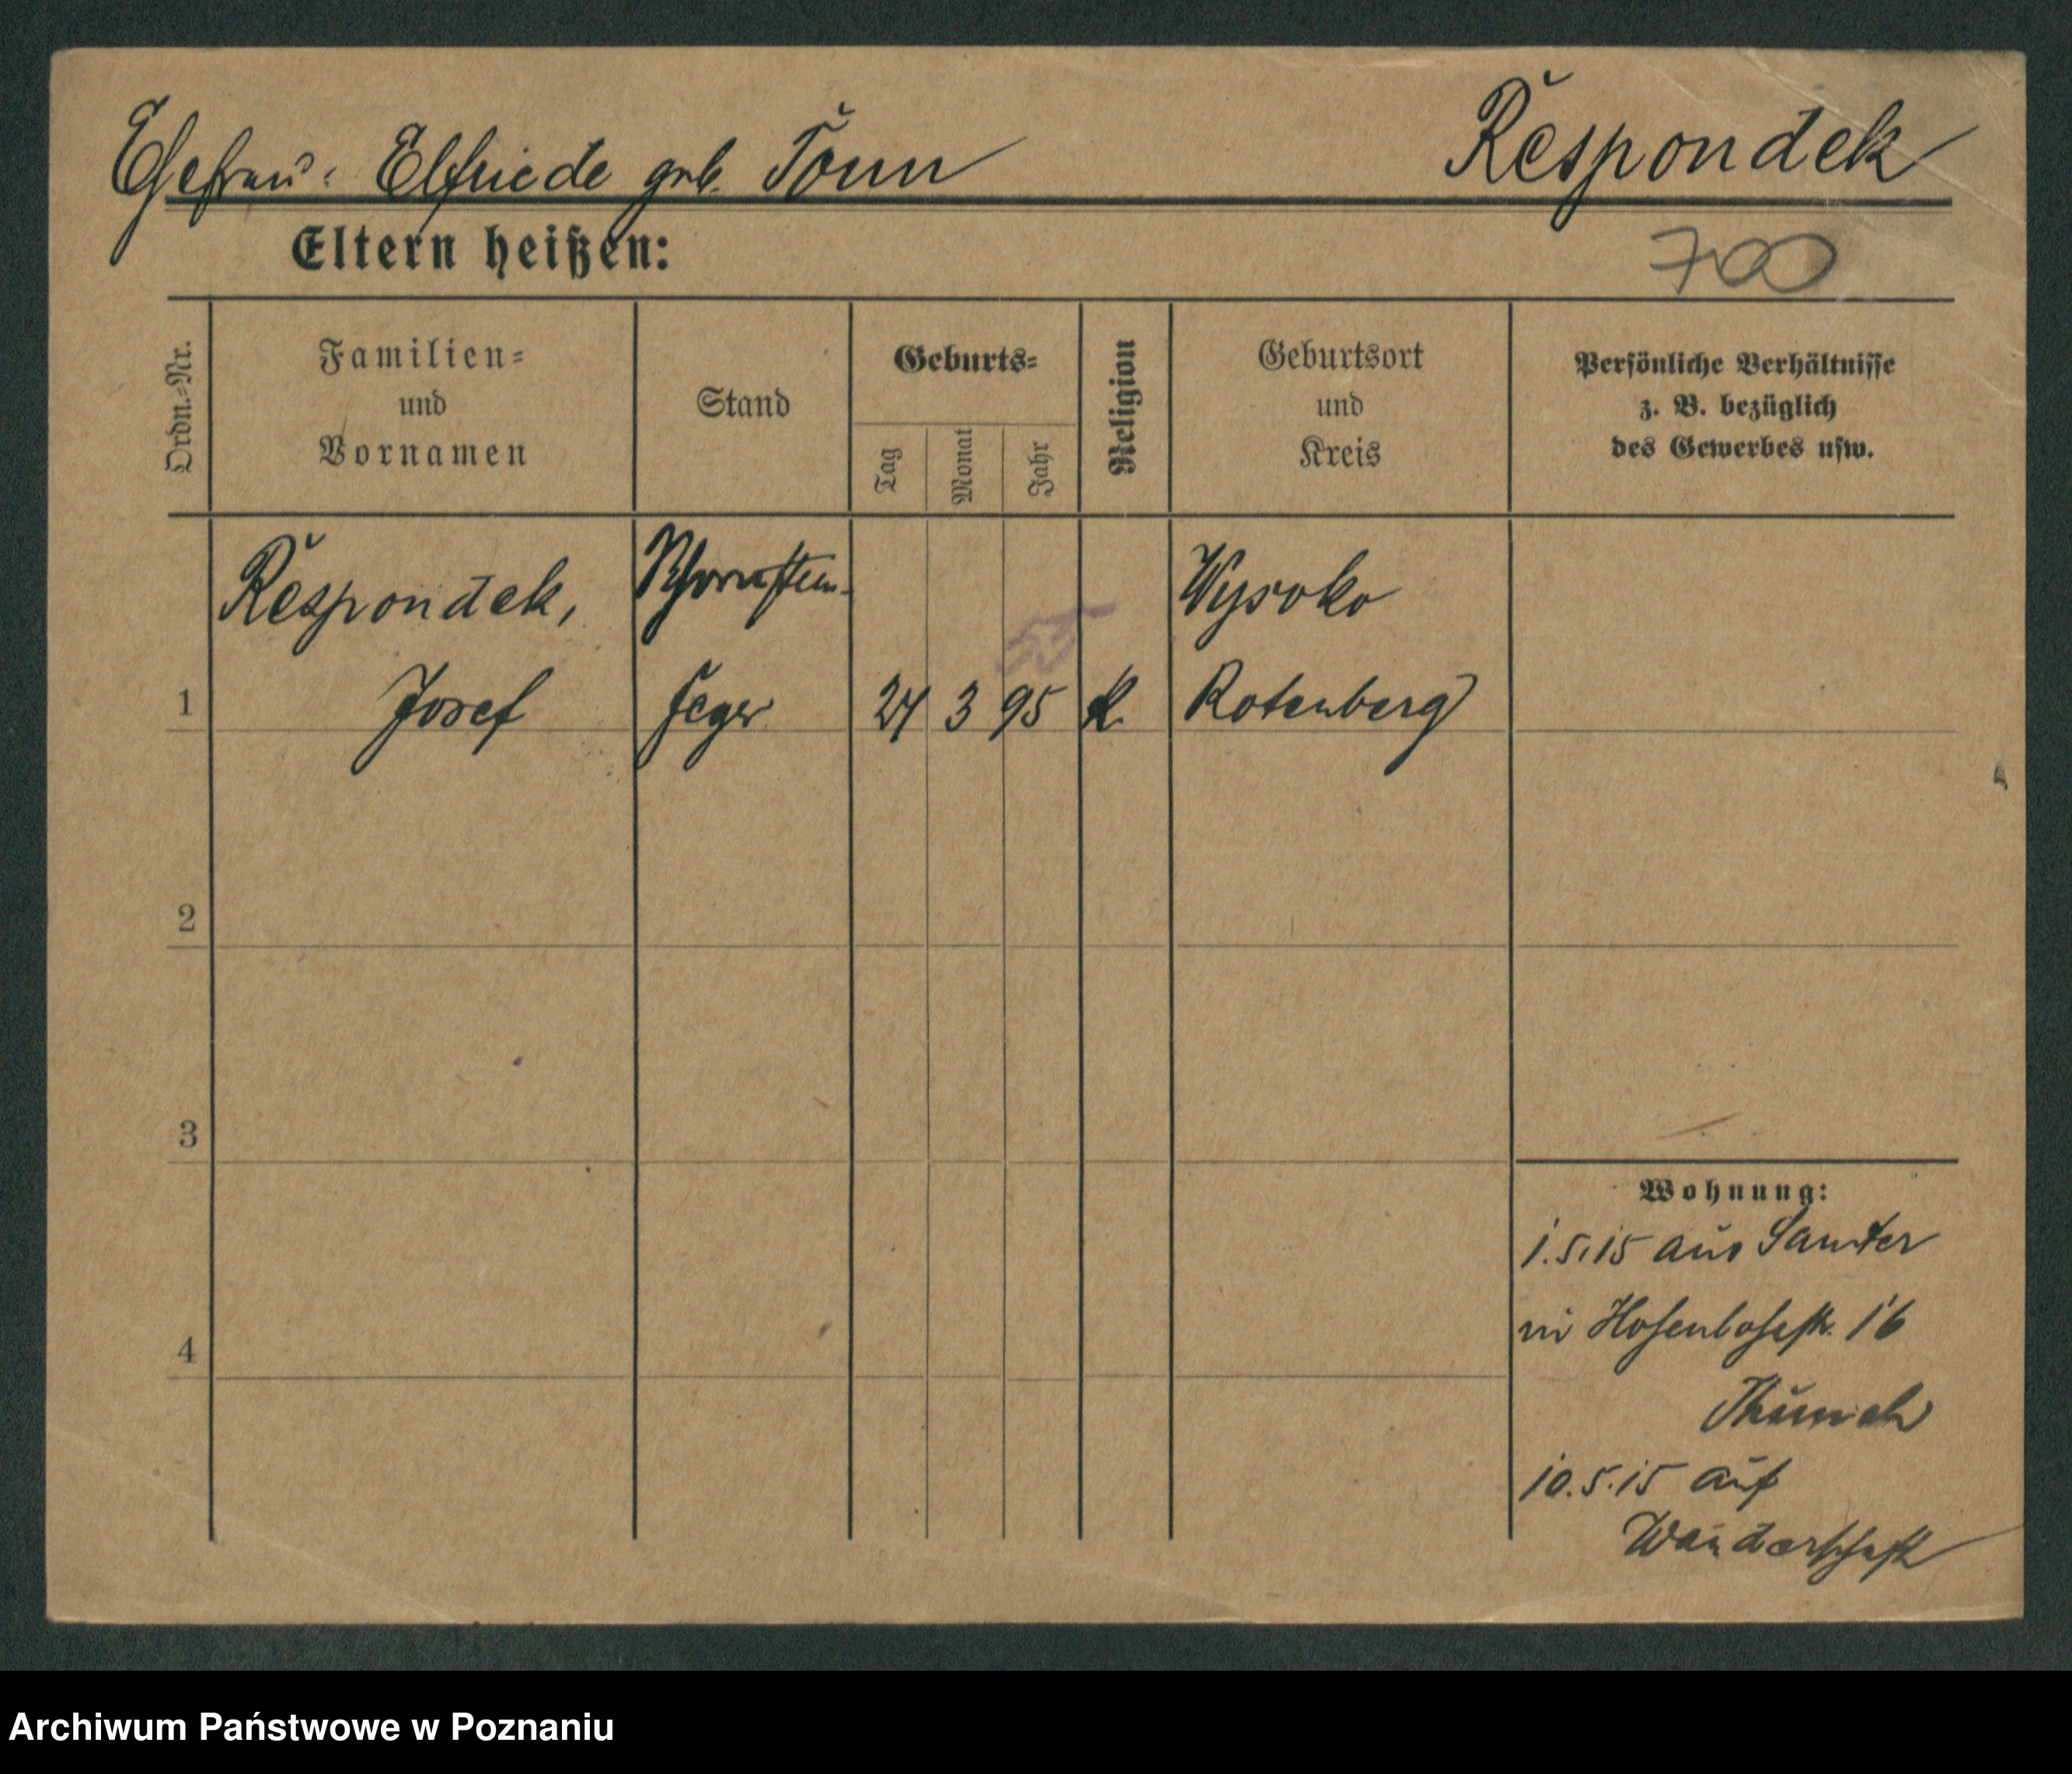 Ehefrau: Elfriede geb. Tonn
Respondek
Eltern heißen:
700
Ordn.=Nr.
Familien=
und
Vornamen
Stand
Geburts=
Tag
Monat
Jahr
Religion
Geburtsort
und
Kreis
Persönliche Verhältnisse
z. B. bezüglich
des Gewerbes usw.
Respondek,
Schornstein-
Wysoko
1
Josef
feger
24 3 95 K.
Rotenberg
2
3
4
Wohnung:
1.5.15 aus Samter
in 16
10.5.15 auf
Wanderschaft
Archiwum Państwowe w Poznaniu